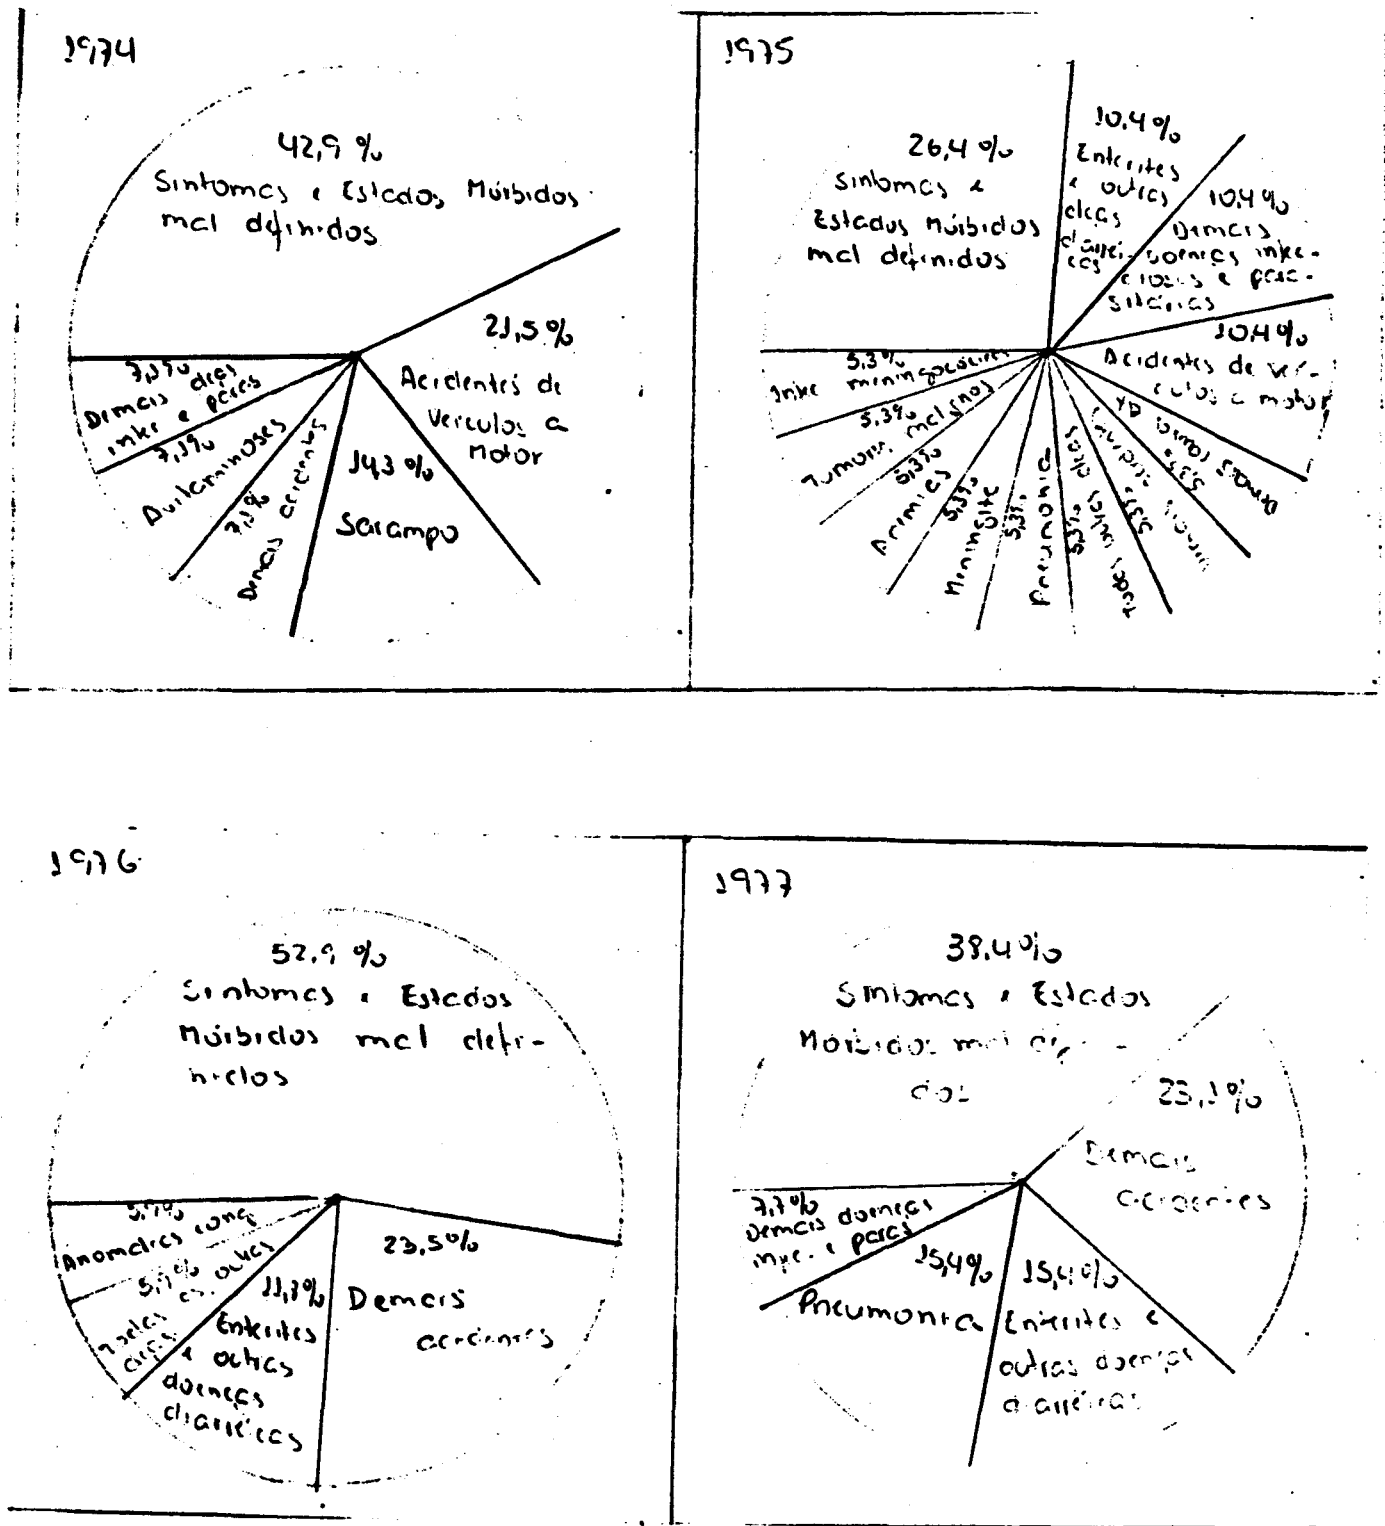 1974
42,9 %
Sintomas e Estados Mórbidos
mal definidos
21,5 %
Acidentes de
Veículos a
Motor
14,3 %
Sarampo
7,1%
Demais acidentes
7,1%
Avitaminoses
7,1%
Demais dças
infec e paras
1975
26,4 %
Sintomas e
Estados Mórbidos
mal definidos
10,4 %
Enterites
e outras
dças
diarréi-
cas
10,4 %
Demais
doenças infec-
ciosas e para-
sitárias
10,4%
Acidentes de veí-
culos a motor
5,3%
Demais
5,3%
5,3%
Todas outras dças
5,3%
Pneumonia
5,3%
Meningite
5,3%
Anemias
5,3%
Tumores malignos
5,3%
Infec meningocócica
1976
52,9 %
Sintomas e Estados
Mórbidos mal defi-
nidos
23,5%
Demais
acidentes
11,8%
Enterites
e outras
doenças
diarréicas
5,9%
Todas
as outras
dças
5,9%
Anomalias cong
1977
38,4%
Sintomas e Estados
Mórbidos mal
dos
23,1%
Demais
acidentes
15,4%
Enterites e
outras doenças
diarréicas
15,4%
Pneumonia
7,7%
Demais doenças
infec. e paras